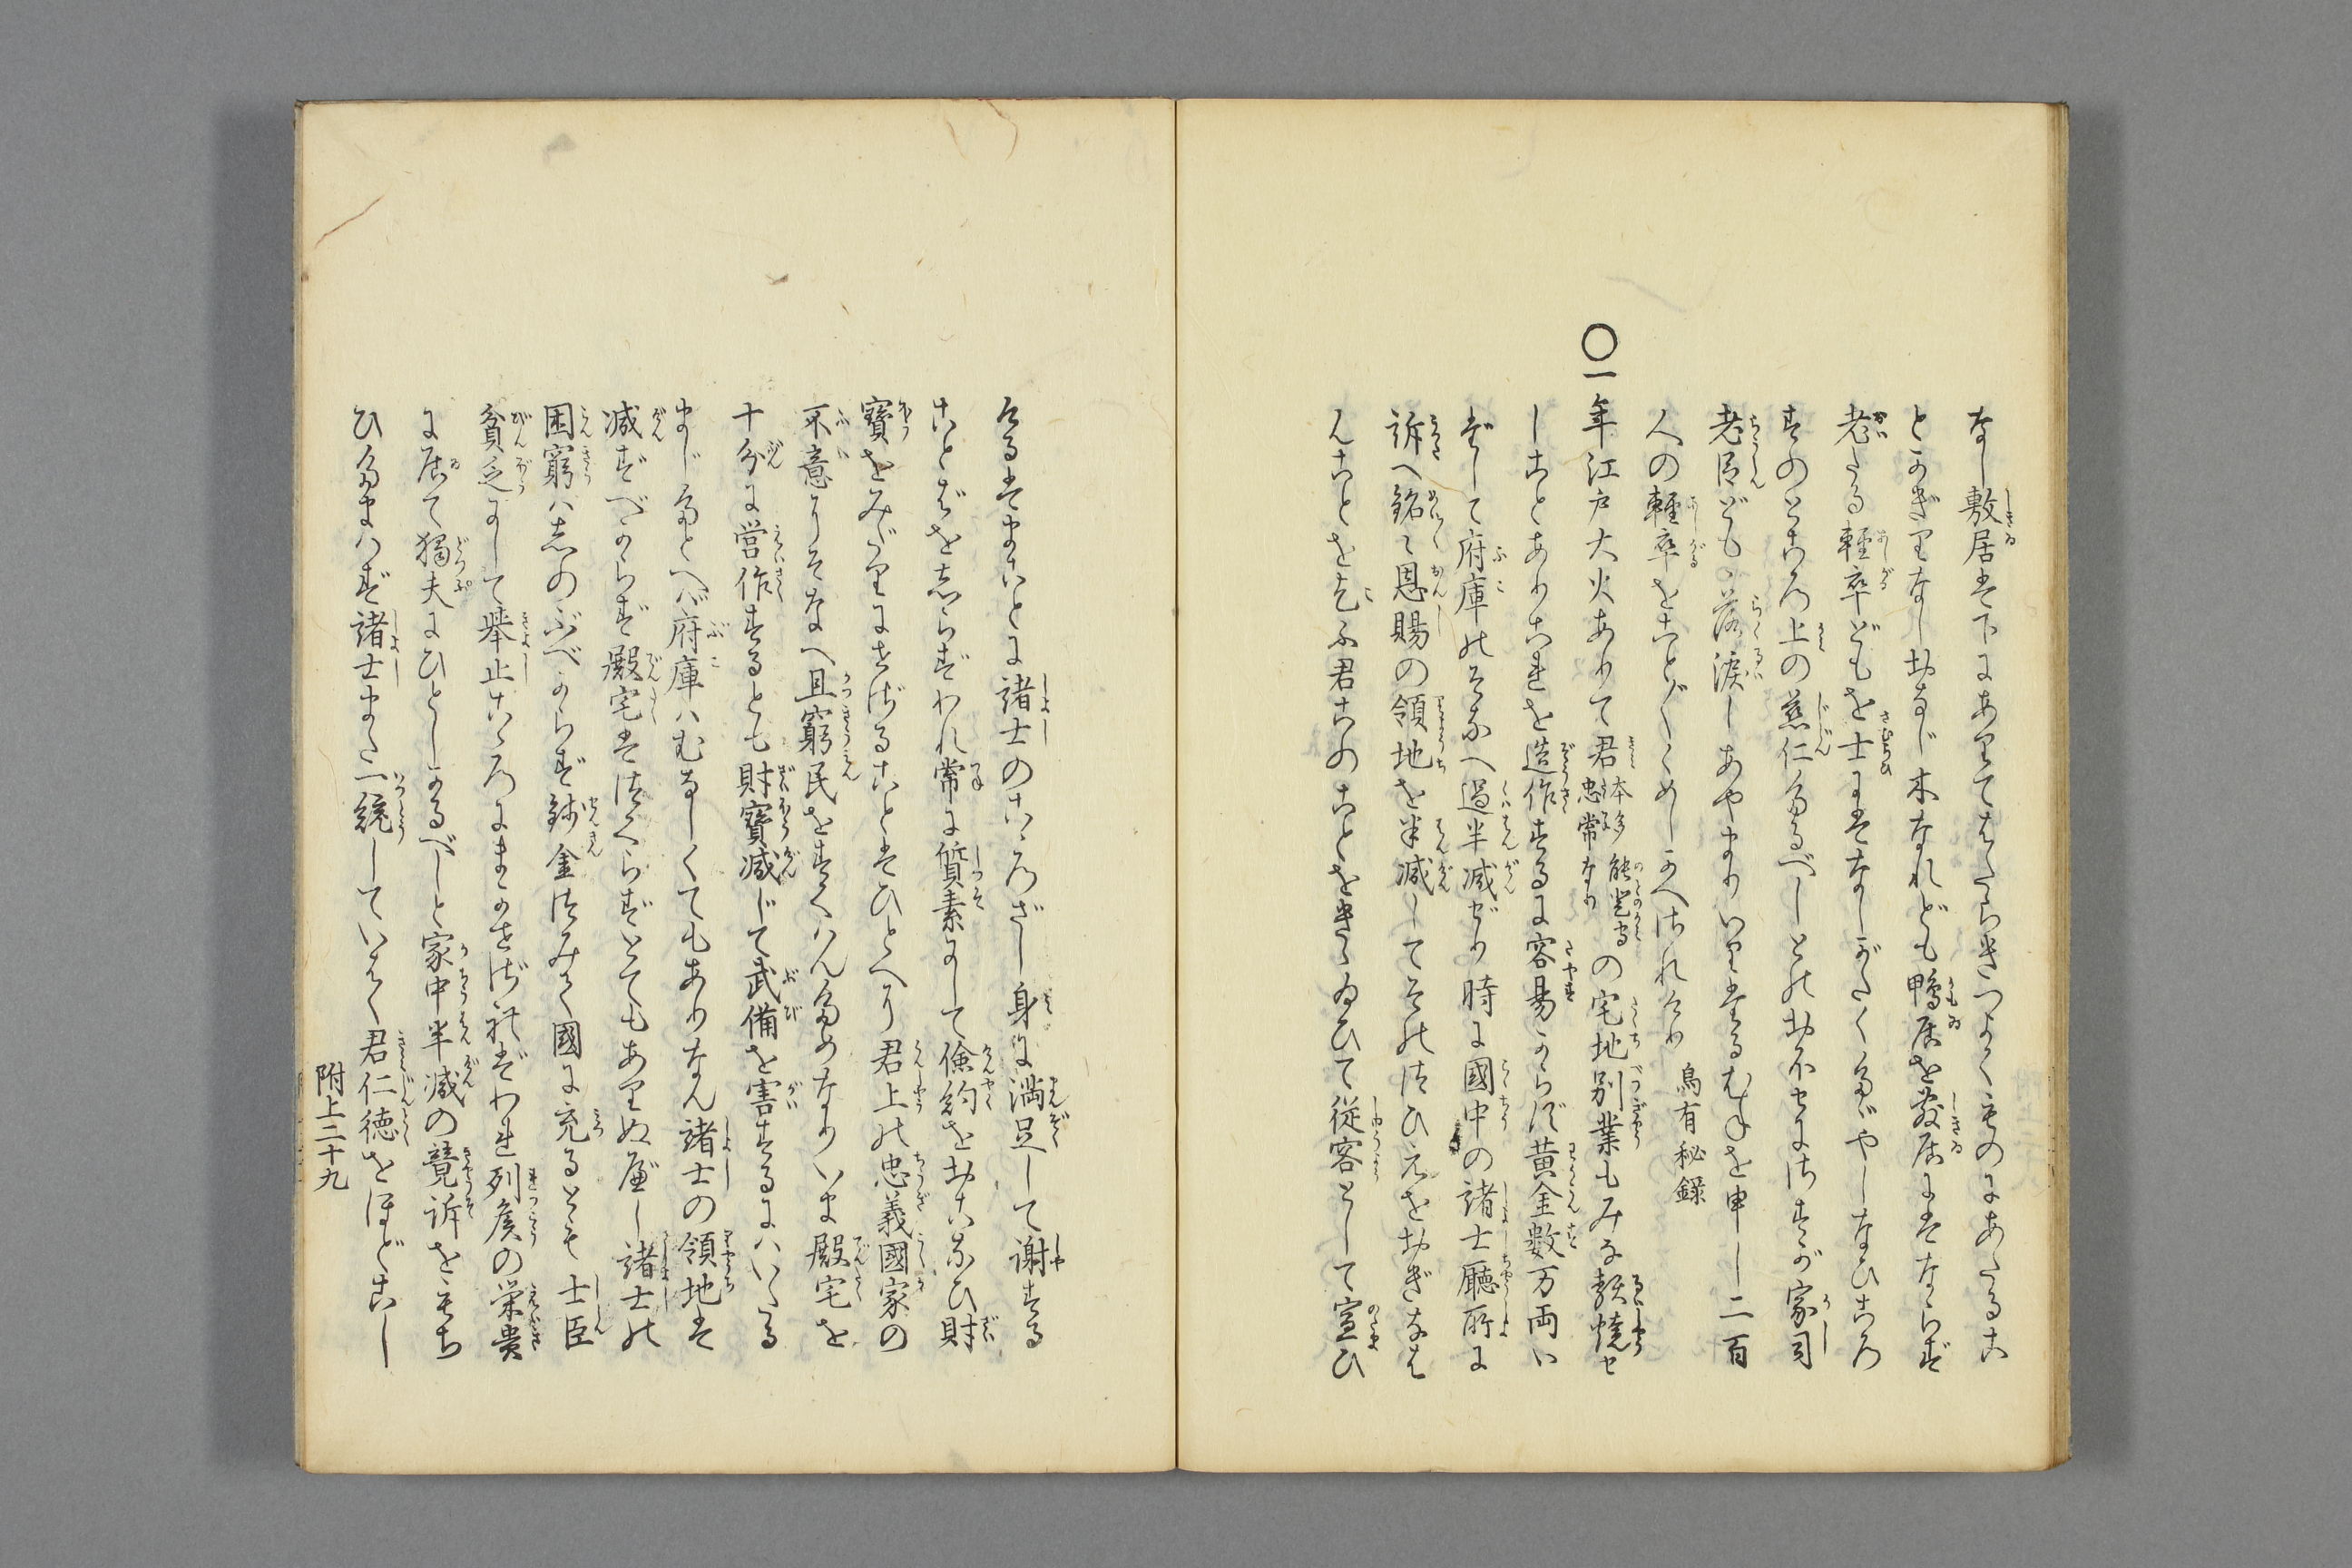 なし敷居は下にありてはたらきつよくものにあたるこ
とかぎりなしおなじ木なれども鴨居を敷居にはならず
老たる軽卒どもを士にはなしがたくたゞやしなひころ
すのところ上の慈仁たるべしとのおふせにけすが家司
老臣ども落涙しあやまりいりたるむねを申し二百
人の軽卒をこと〴〵くめしかへされけり 烏有秘録
〇一年江戸大火ありて君本多能登守忠常なりの宅地別業もみな類焼せ
しことありこれを造作するに容易からず黄金数万両い
だして府庫のそなへ過半減ぜり時に國中の諸士廳所に
訴へ銘〻恩賜の領地を半減してその付ひえをおぎなは
んことを乞ふ君このことをきゝゐひて従容として宣ひ
けるはまことに諸士のこゝろざし身に満足して謝する
ことばをしらずわれ常に質素にして倹約をおこなひ財
寶をみだりにせざることはひとへに君上の忠義國家の
不意にそなへ且窮民をすくはんためなりいま殿宅を
十分に営作するとも財寶減じて武備を害するにいたる
まじたとへば府庫はむなしくてもありなん諸士の領地は
減ずべからず殿宅はつくらずとてもありぬべし諸士の
困窮はしのぶべからず鈔金つみて國に充るとも士臣
貧乏にして挙止こゝろにまかせざればわれ列侯の栄貴
に居て獨夫にひとしかるべしと家中半減の競訴をもち
ひたまはず諸士また一統していはく君仁徳をほどこし
附上二十九